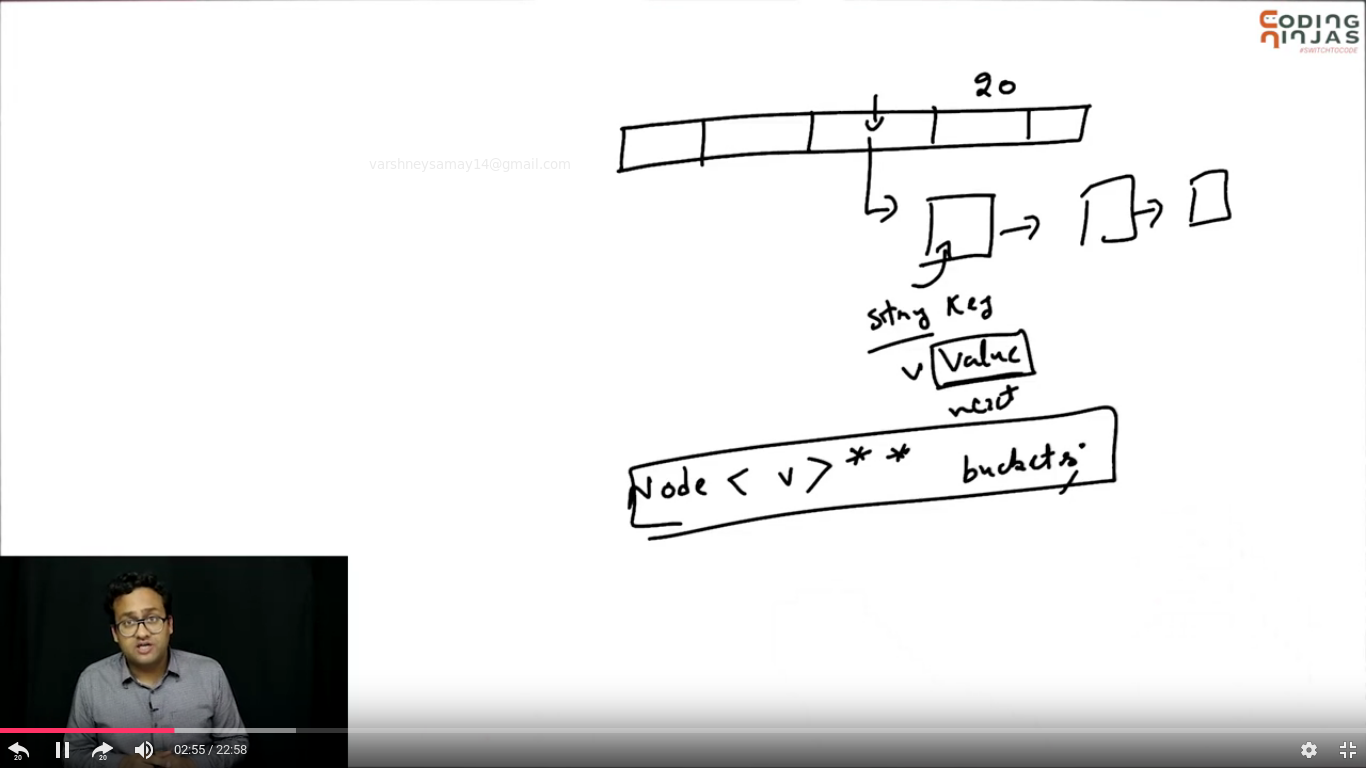 CODING
NINJAS
#SWITCHTOCODE
20
varshneysamay14@gmail.com
string Key
V Value
next
Node < V > * * buckets;
20
20
02:55 / 22:58